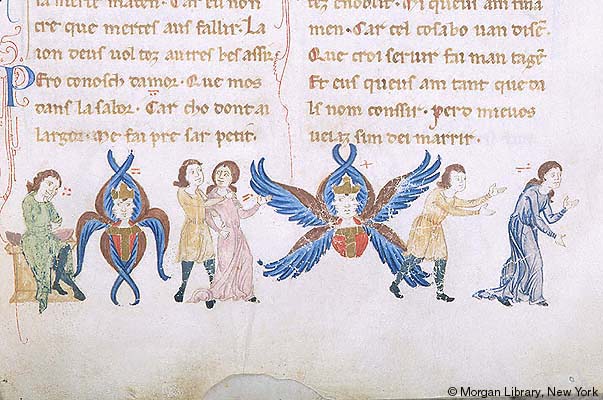 la merce maten. Car eu non
cre que merces aus fallir. La
ion deus uol toz autres bes assir
Pero conosch damor. Que mos
dans la sabor. Car cho dont ai
largor. Me fai pre sar petit.
enobilit. Mi queus am fina
men. Car cel cosabo uan disē.
Que croi seruir fai man tagē
Et eus queus am tant que da
ls nom conssir. perd mieuos
ueiaz sim dei marrir.
© Morgan Library, New York